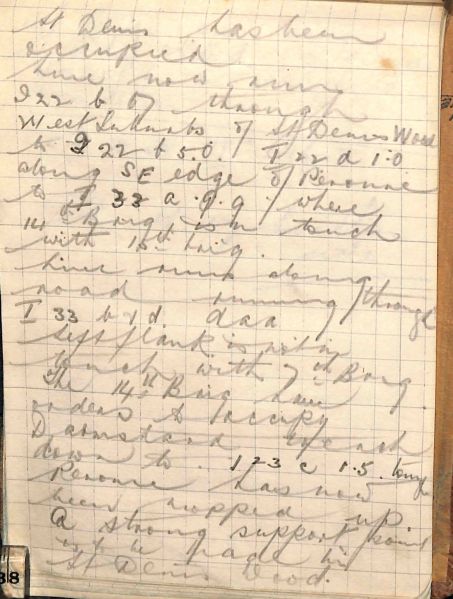 St Denis has been
occupied
Line now runs
I 22 b 67 through
West Suburbs of St Denis Wood
to I 22 b 5.0. I 22 d 1.0
along SE edge of Peronne
to I 33 a .9.9. where
14th Brig is in touch
with 15th brig.
Line runs along
road running through
I 33 b & d. daa
Left flank is not in
touch with 7th Brig.
The 14th Brig have
orders to occupy
Darmstand trench
down to . 123 c 1.5.
Peronne has now
been mopped up
A strong support point
is to be made in
St Denis Wood.
38